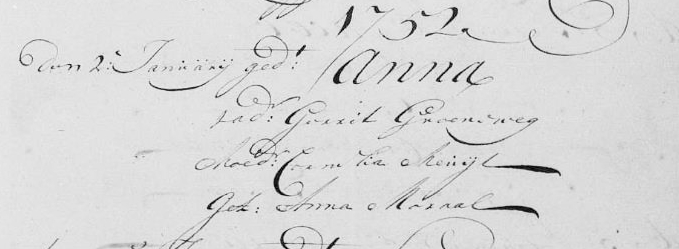 1752
Den 2: Januarij ged: Anna
vad: Gerrit Groeneweg
Moed: Cornelia
Get: Anna Moraal